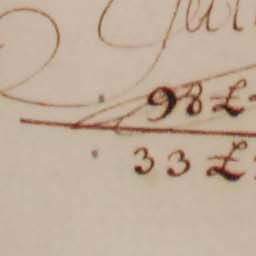 98 £
33 £